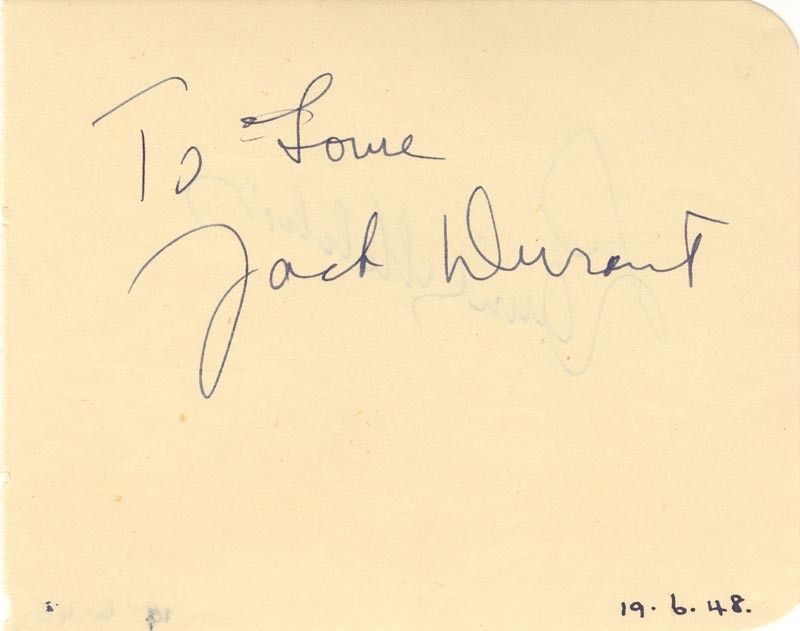 To Lowe
Jack Durant
19. 6. 48.